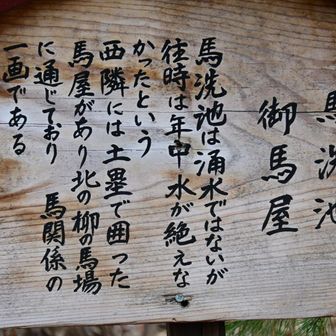 馬洗池
御馬屋
馬洗池は涌水ではないが
往時は年中水が絶えな
かったという
西隣には土塁で囲った
馬屋があり北の柳の馬場
に通じており 馬関係の
一画である